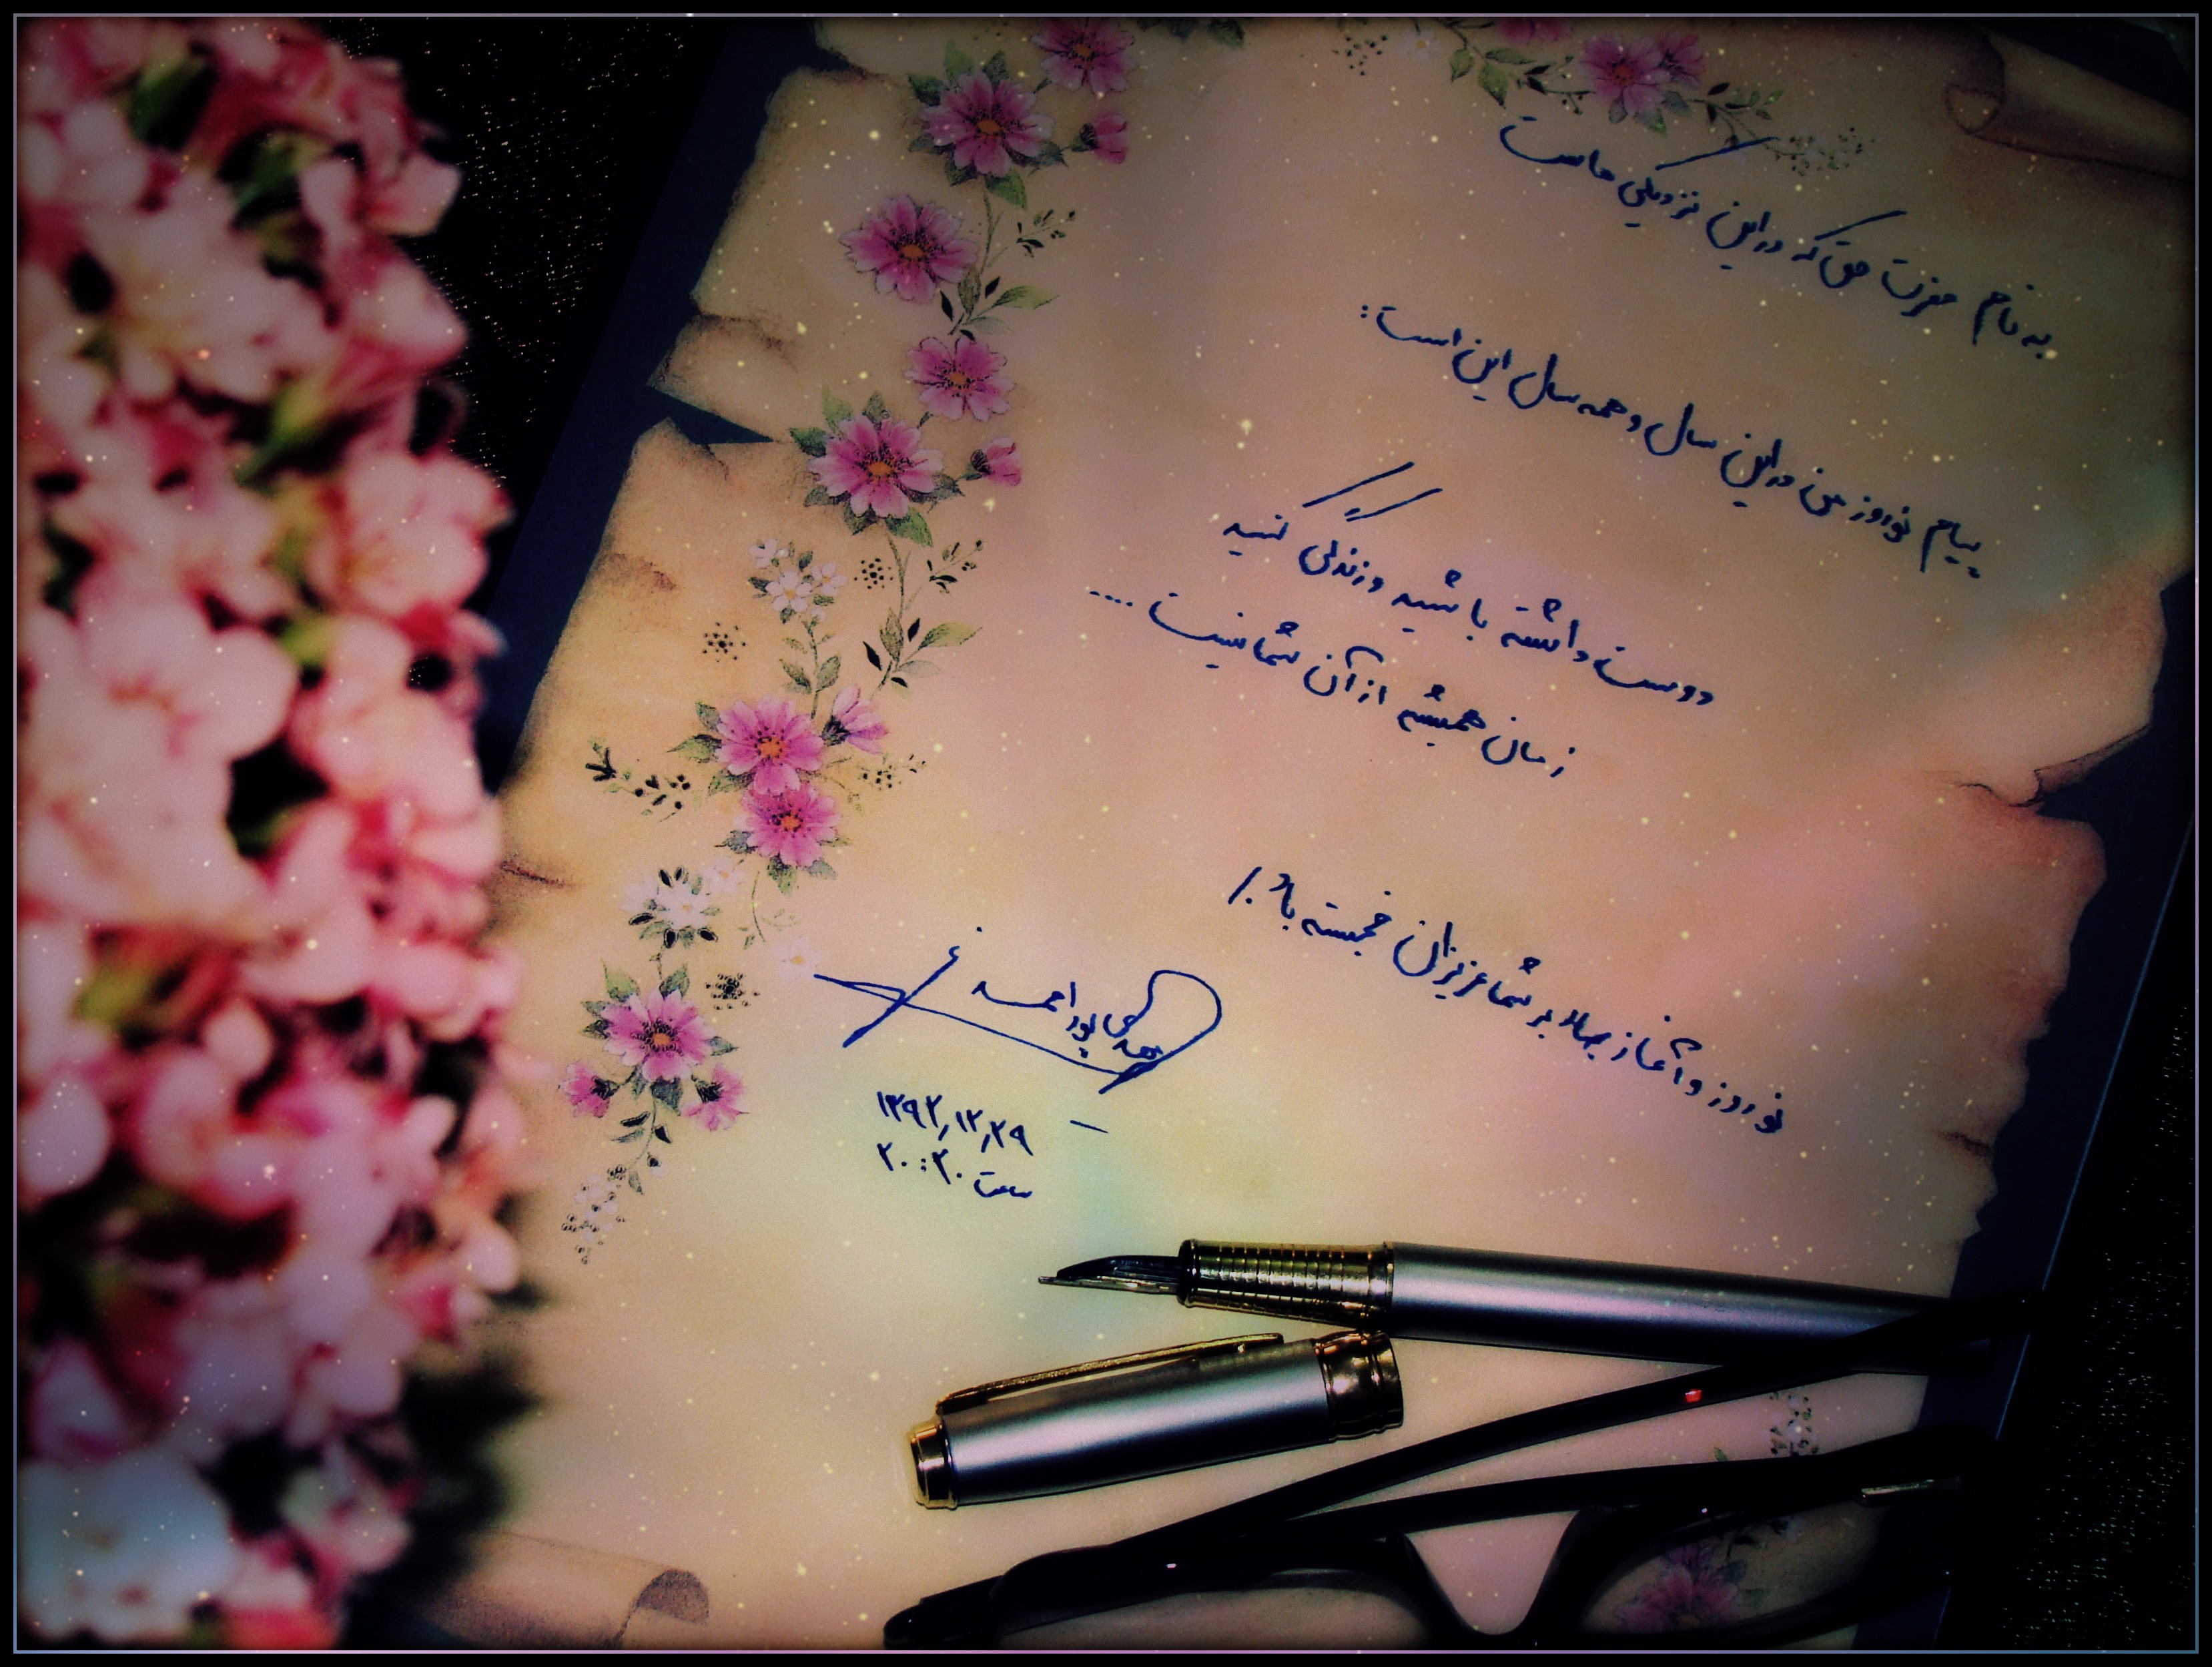 به نام حضرت حق که در این نزدیکی هاست
پیام نوروز من در این سال و همه سال این است:
دوست داشته باشید و زندگی کنید
زمان همیشه از آن شما نیست ....
نوروز و آغاز بهار بر شما عزیزان خجسته باد./
پوراحمد
۱۳۹۲,۱۲,۲۹
ساعت ۲۰:۲۰